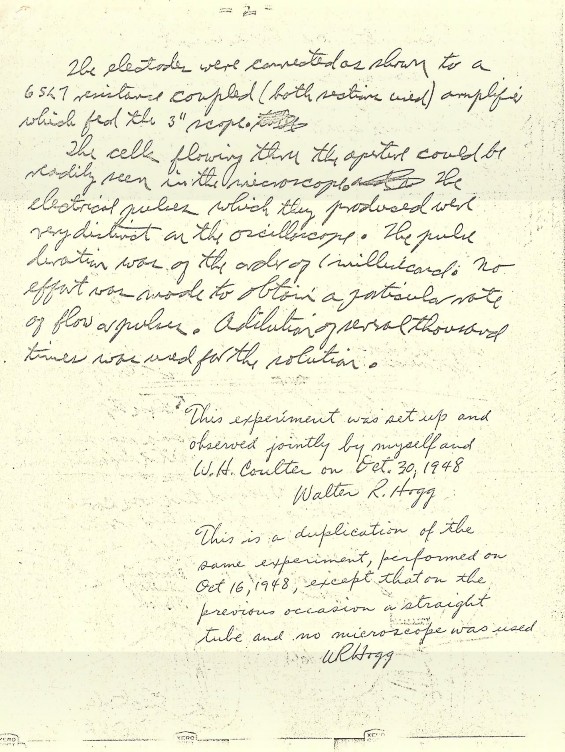 - 2 -
The electrodes were connected as shown to a
6SL7 resistance coupled (both sections used) amplifier
which fed the 3" scope.
The cells flowing thru the aperture could be
readily seen in the microscope. The
electrical pulses which they produced were
very distinct on the oscilloscope. The pulse
duration was of the order of 1 millisecond. No
effort was made to obtain a particular rate
of flow or pulses. A dilution of several thousand
times was used for the solution.
This experiment was set up and
observed jointly by myself and
W. H. Coulter on Oct. 30, 1948
Walter R. Hogg
This is a duplication of the
same experiment, performed on
Oct 16, 1948, except that on the
previous occasion a straight
tube and no microscope was used
WRHogg
XERO XERO XERO